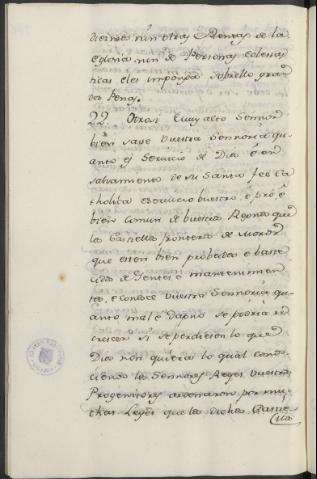 diezmos nin otras Rentas de la
Eglesia nin de Personas eclesias
ticas e les imponga sobre ello gran
des Penas.
22. Otrosi Muy alto Sennor
bien save Vuestra Sennoria qu
anto es Servicio de Dios é en
salvamiento de su Santa fee ca
tholica é servicio buestro, é pró é
bien comun de buestros Regnos que
los Castillos fronteros de Moros
que esten bien probeidos é baste
cidos de Gentes é mantenimien
tos, e conoce Vuestra Sennoria qu
anto mal é Danno se podria re
crescer si se perdiesen lo que
Dios non quiera lo qual cono
ciendo los Sennores Reyes Vuestros
Progenitores ordenaron por mu
chas Leyes que los dichos Casti
llos